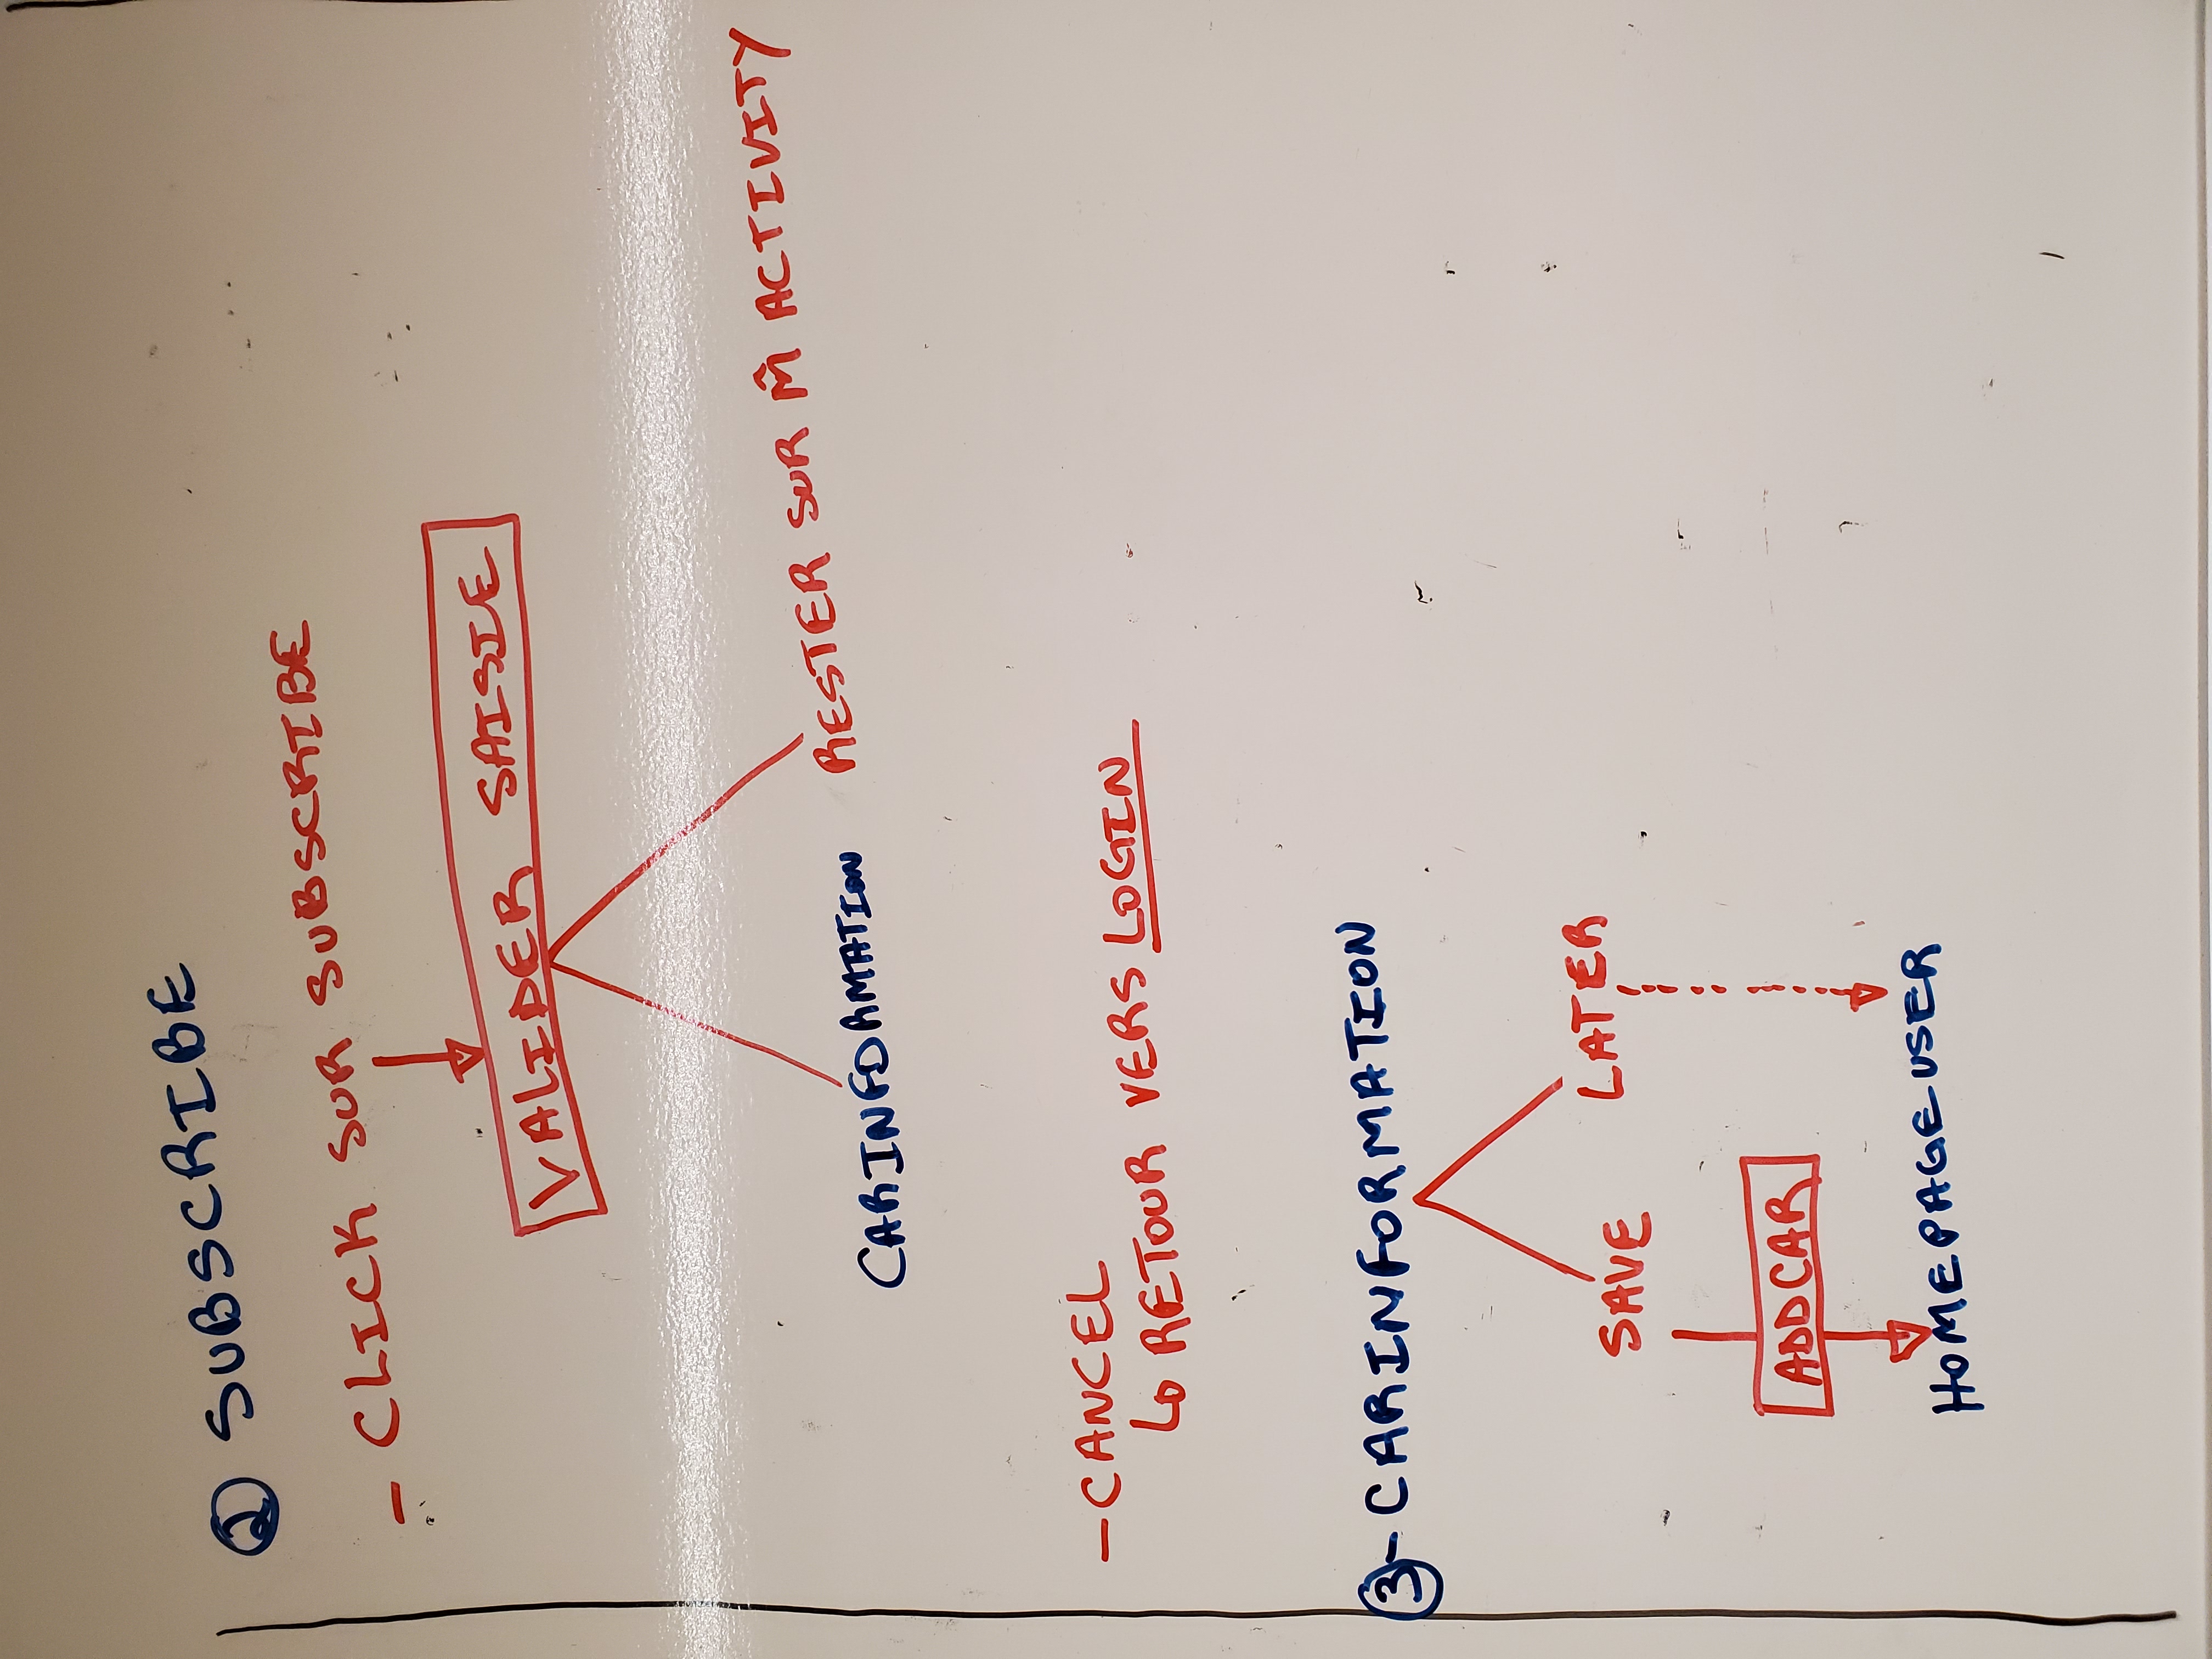 ② SUBSCRIBE
- CLICK SUR SUBSCRIBE
VALIDER SAISIE
CARINFORMATION
RESTER SUR M̂ ACTIVITY
- CANCEL
↳ RETOUR VERS LOGIN
③ - CARINFORMATION
SAVE
LATER
ADDCAR
HOMEPAGEUSER